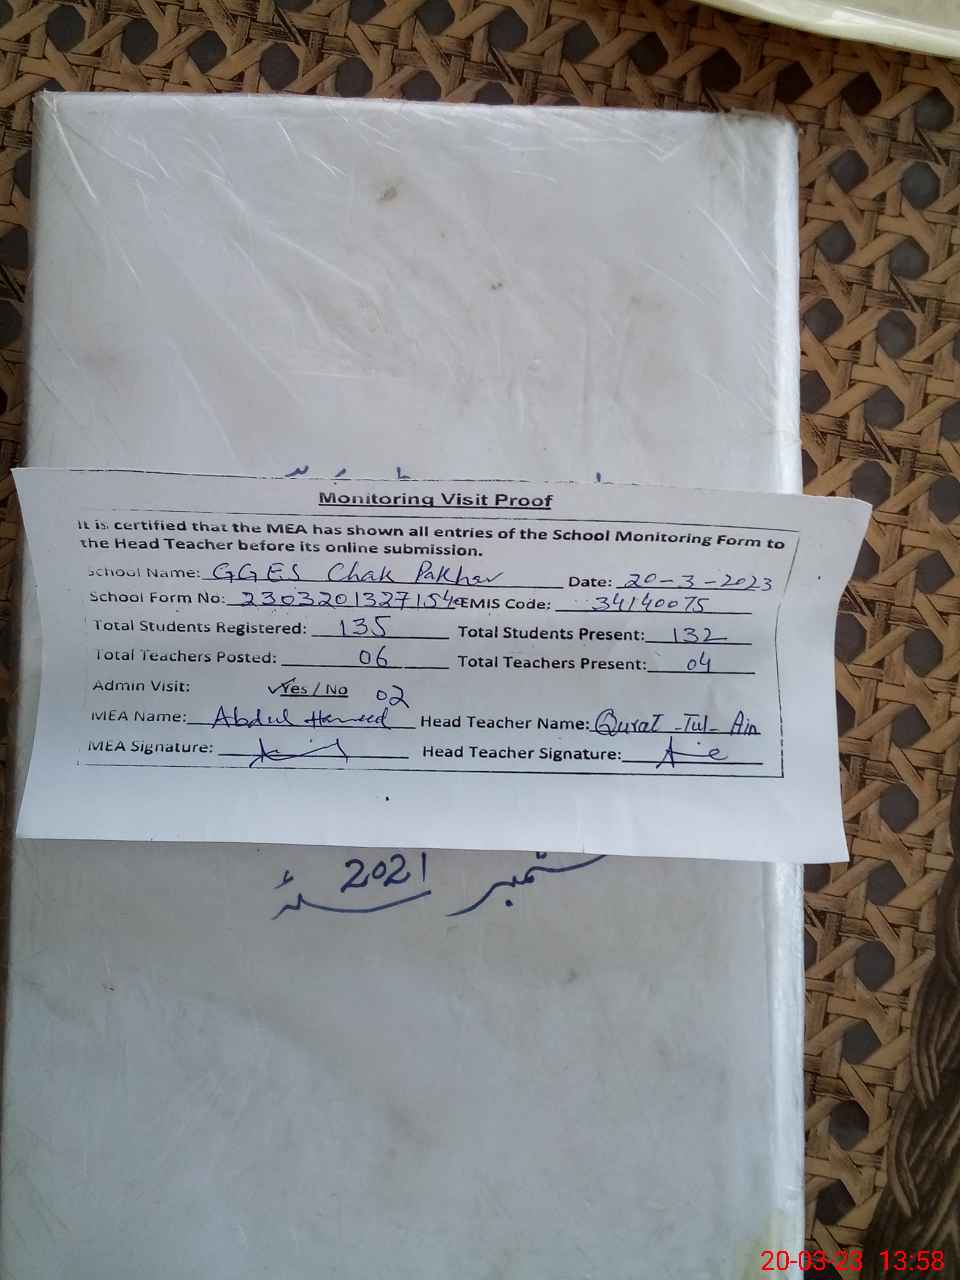 Monitoring Visit Proof
It is certified that the MEA has shown all entries of the School Monitoring Form to
the Head Teacher before its online submission.
School Name: GGES Chak Pakhar Date: 20-3-2023
School Form No: EMIS Code: 34140075
Total Students Registered: 135 Total Students Present: 132
Total Teachers Posted: 06 Total Teachers Present: 04
Admin Visit: Yes / No 02
MEA Name: Abdul Hameed Head Teacher Name: Qurat-Tul-Ain
MEA Signature: Head Teacher Signature:
ستمبر 2021ء
20-03-23 13:58